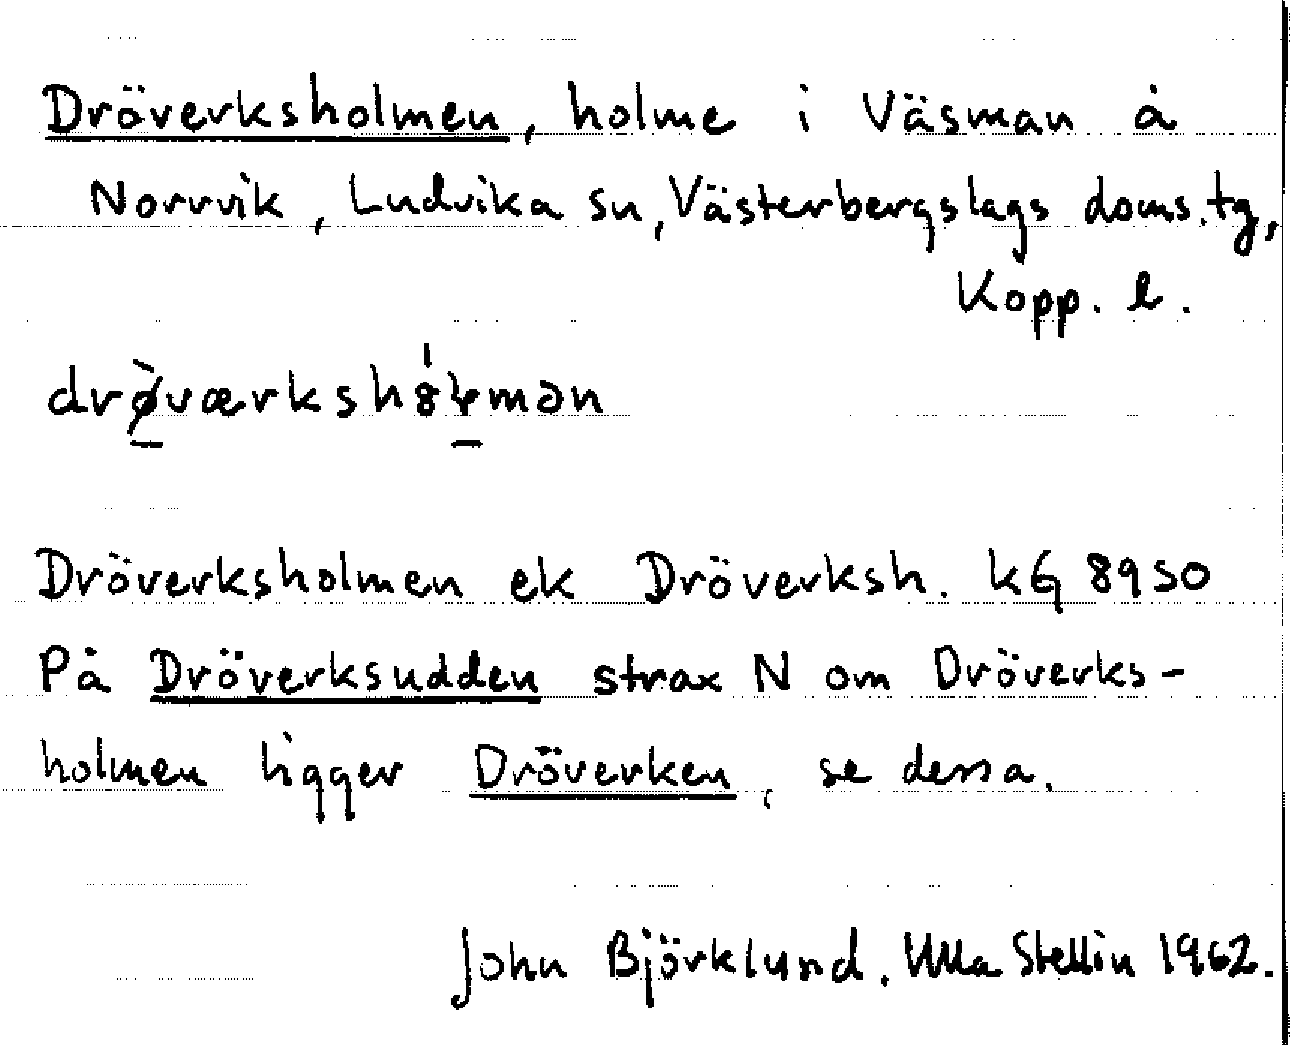 Dröverksholmen, holme i Väsman å
Norrvik, Ludvika sn, Västerbergslags doms.tg,
Kopp. l.
Dröverksholmen ek Dröverksh. kG 8950
På Dröverksudden strax N om Dröverks-
holmen ligger Dröverken, se dessa.
John Björklund. Ulla Stellin 1962.